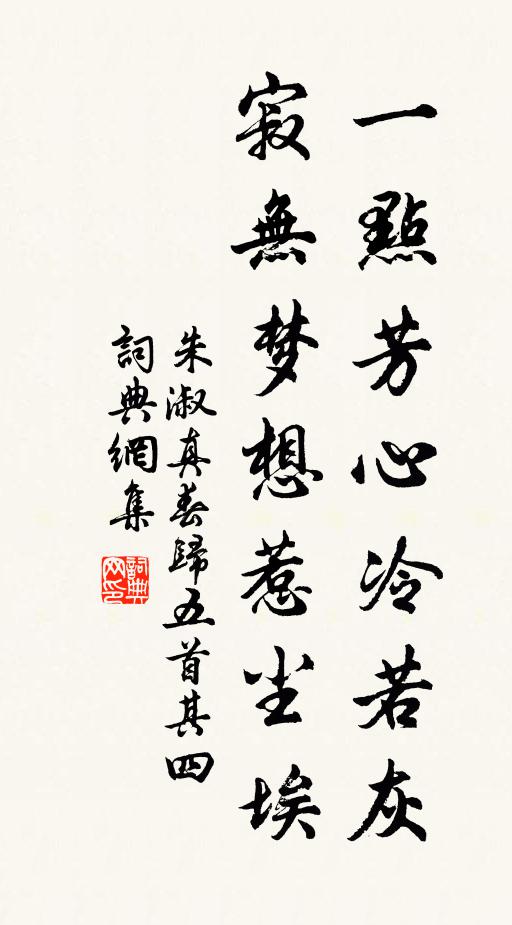 一點芳心冷若灰
寂無梦想惹尘埃
朱淑真春歸五首其四
詞典網集
詞典
网印